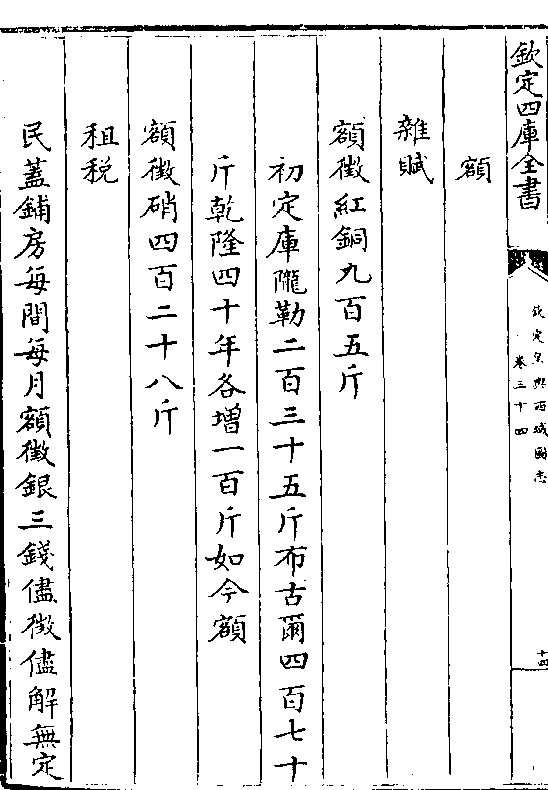 欽定四庫全書
欽定皇輿西域圖志
卷三十四
十四
額
雜賦
額徵紅銅九百五斤
初定庫隴勒二百三十五斤布古爾四百七十
斤乾隆四十年各增一百斤如今額
額徵硝四百二十八斤
租稅
民蓋鋪房每間每月額徵銀三錢儘徵儘解無定